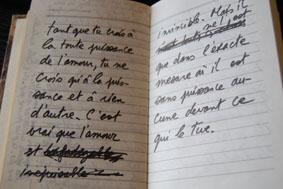 tant que tu crois à
la toute puissance
de l'amour, tu ne
crois qu'à la puis-
sance et à rien
d'autre. C'est
vrai que l'amour
et
invincible. Mais il
ne l'est
que dans l'exacte
mesure où il est
sans puissance au-
cune devant ce
qui le tue.